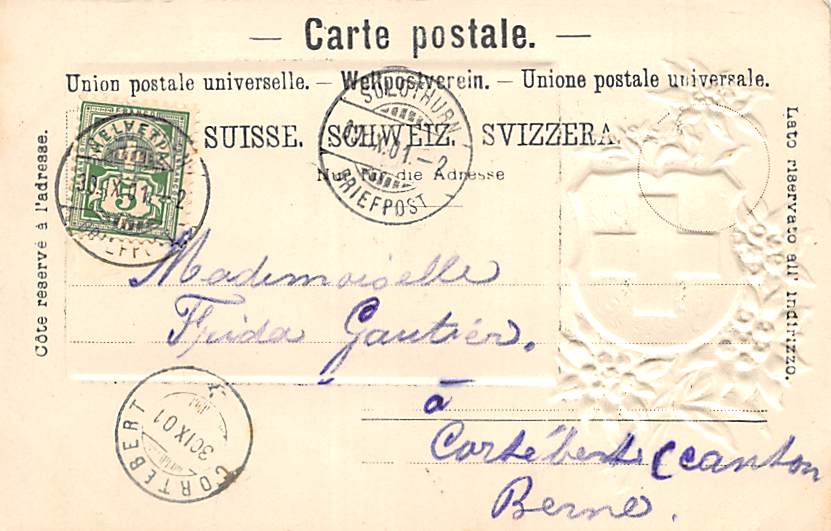 — Carte postale. —
Union postale universelle. — Weltpostverein. — Unione postale universale.
SUISSE. SCHWEIZ. SVIZZERA.
Nur für die Adresse
Côte reservé à l'adresse.
Lato riservato all' indirizzo.
5
30.IX.01.-2
SOLOTHURN
.IX.01.-2
BRIEFPOST
Mademoiselle
Frida Gautier.
à
Cortébert (canton
Berne.
CORTEBERT
30 IX 01